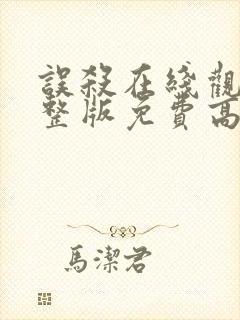 誤殺在綫觀
整版免費高
馬潔君